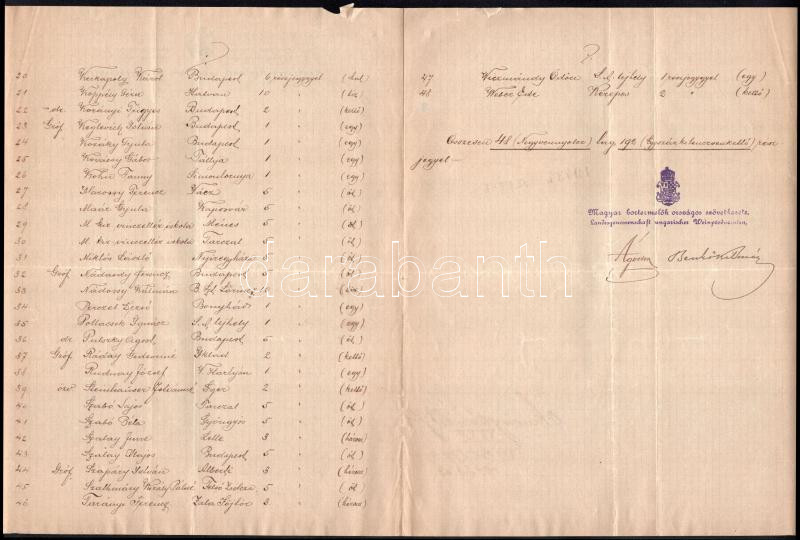 20 Kerkapoly Károly Budapest 6 részjegygyel (hat)
21 Köppély Géza Hatvan 10 " (tiz)
22 dr Korányi Frigyes Budapest 2 " (kettő)
23 Gróf Keglevich István Budapest 1 " (egy)
24 Kozáky Gyula Budapest 1 " (egy)
25 Kovássy Gábor Tállya 1 " (egy)
26 Kohn Fanny Simontornya 1 " (egy)
27 Marossy Ferencz Vácz 5 " (öt)
28 Gyula Kaposvár 5 " (öt)
29 M. kir vinczellér iskola Ménes 5 " (öt)
30 M. kir vinczellér iskola Tarczal 5 " (öt)
31 Miklós László Nyiregyháza 1 " (egy)
32 Gróf Nádasdy Ferencz Budapest 5 " (öt)
33 Nádossy Kálmán B. Sz. Lőrincz 10 " (tiz)
34 Perczel Dezső Bonyhád 1 " (egy)
35 Pollacsek Ignácz S. A. Ujhely 1 " (egy)
36 dr Pulszky Agost Budapest 5 " (öt)
37 Gróf Ráday Gedeonné Iklad 2 " (kettő)
38 Rudnay József T. Hartyán 1 " (egy)
39 özv Steinhauser Eger 2 " (kettő)
40 Szabó Lajos Tarczal 5 " (öt)
41 Szabó Béla Gyöngyös 5 " (öt)
42 Szalay Imre Lelle 3 " (három)
43 Szalay Lajos Budapest 5 " (öt)
44 Gróf Szapáry István Alberti 3 " (három)
45 Szathmáry Király Pálné Felső Zsolcza 5 " (öt)
46 Tarányi Ferencz Zala 3 " (három)
47 Viczmándy Ödön S. A. Ujhely 1 részjegygyel (egy)
48 Weisz Ede Kerepes 2 " (kettő)
Összesen 48 (Negyvennyolcz) tag 192 (Egyszázkilenczvenkettő) rész
jegyel —
Magyar bortermelők országos szövetkezete,
Landesgenossenschaft ungarischer Weinproducenten,
Ágoston Benkő Kálmán
darabanth